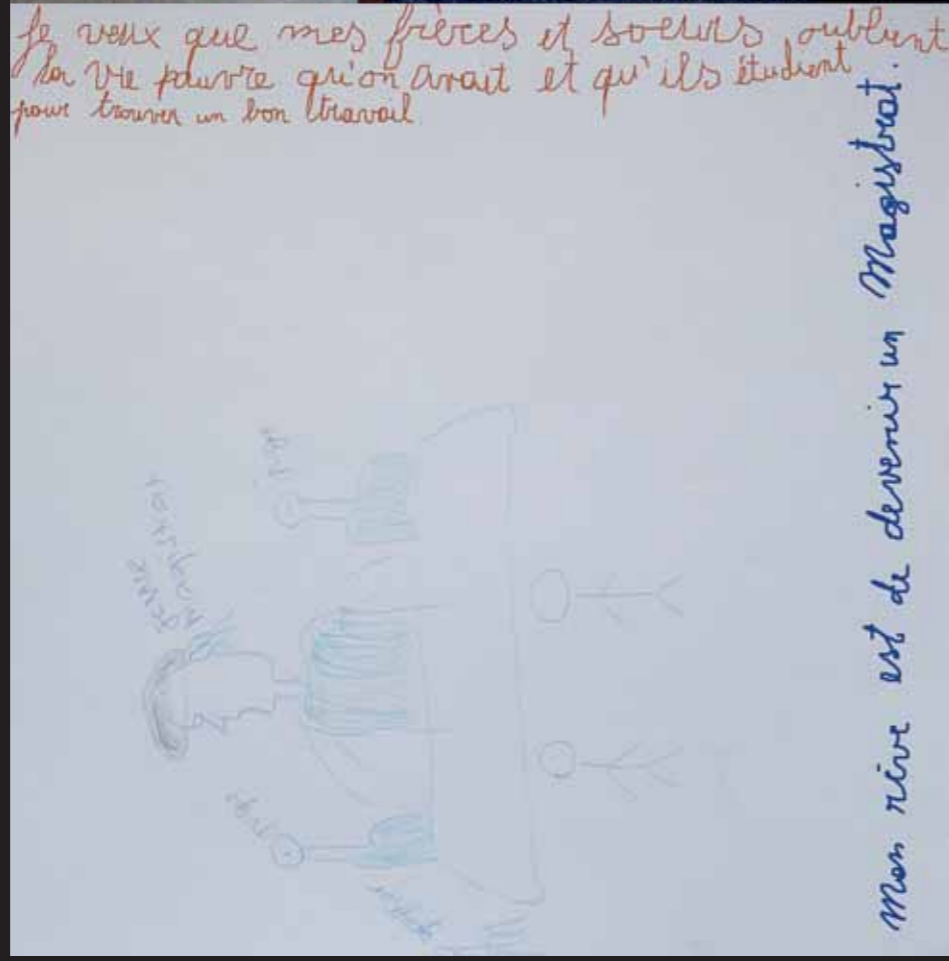 Je veux que mes frères et soeurs oublient
la vie pauvre qu'on avait et qu'ils étudient
pour trouver un bon travail
Mon rêve est de devenir un Magistrat.
magistrat